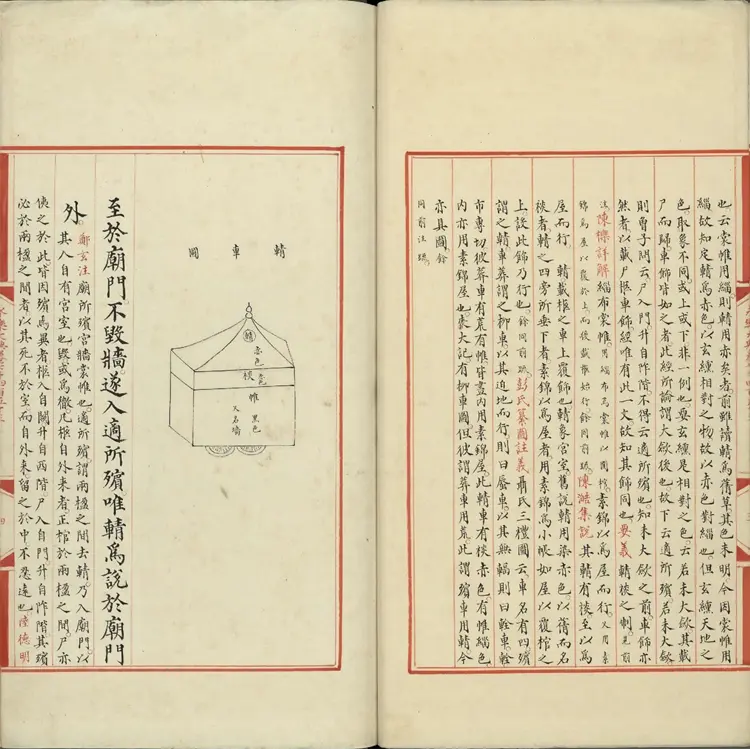 也云裳帷用緇則輤用赤矣者前雖讀輤爲蒨草其色未明今因裳帷用
緇故知定輤爲赤色以玄纁相對之物故以赤色對緇也但玄纁天地之
色取象不同或上或下非一例也要玄纁是相對之色云若未大歛其載
尸而歸車飾皆如之者此經所論謂大歛後也故下云適所殯若未大歛
則曾子問云尸入門升自阼階不得云適所殯也知未大歛之前車飾亦
然者以載尸柩車飾經唯有此一文欲知其飾同也要義輤裧之制已前
注陳櫟詳解緇布裳帷用緇布爲裳帷以圍棺素錦以爲屋而行又用素
錦爲屋以覆於上而後載殯始行餘同前疏陳澔集説其輤有裧至以爲
屋而行 輤載柩之車上覆飾也輤象宮室舊説輤用染赤色以蒨而名
裧者輤之四旁所垂下者素錦以爲屋者用素錦爲小帳如屋以覆棺之
上設此錦乃行也餘同前疏彭氏纂圖註義聶氏三禮圖云車名有四殯
謂之輤車葬謂之柳車以其迫地而行則曰蜃車以其無輻則曰輇車輇
市專切彼葬車有荒有帷皆畫内用素錦屋此輤車有裧赤色有帷緇色
内亦用素錦屋也喪大記有柳車圖但彼謂葬車用荒此謂殯車用輤今
亦具圖餘
同前注疏
輤車圖
輤
赤色
裧
赤色
帷
黑色
又名墻
至於廟門不毀牆遂入適所殯唯輤爲説於廟門
外鄭玄注廟所殯宮牆裳帷也適所殯謂兩楹之間去輤乃入廟門以
其入自有宮室也毀或爲徹凡柩自外來者正棺於兩楹之間尸亦
侇之於此皆因殯焉異者柩入自闕升自西階尸入自門升自阼階其殯
必於兩楹之間者以其死不於室而自外來留之於中不忍遠也陸德明